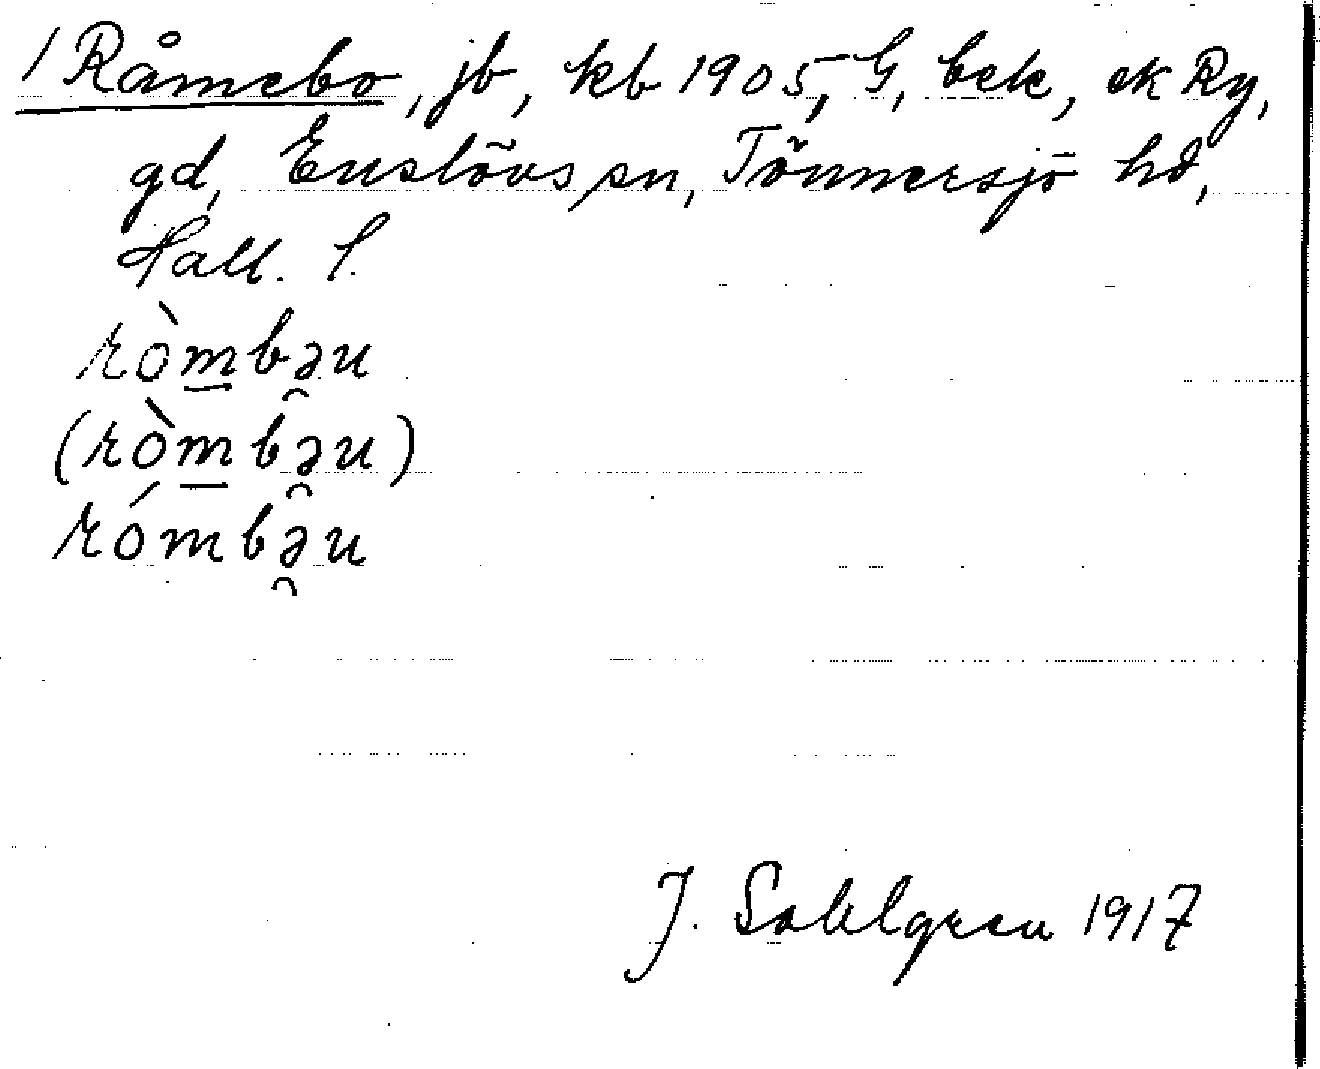 / Råmebo, jb, kb 1905, G, bek, ek Ry,
gd, Enslövs sn, Tönnersjö hd,
Hall. l.
ròm̲bə̯u
(ròm̲bə̯u)
rómbə̯u
J. Sahlgren 1917